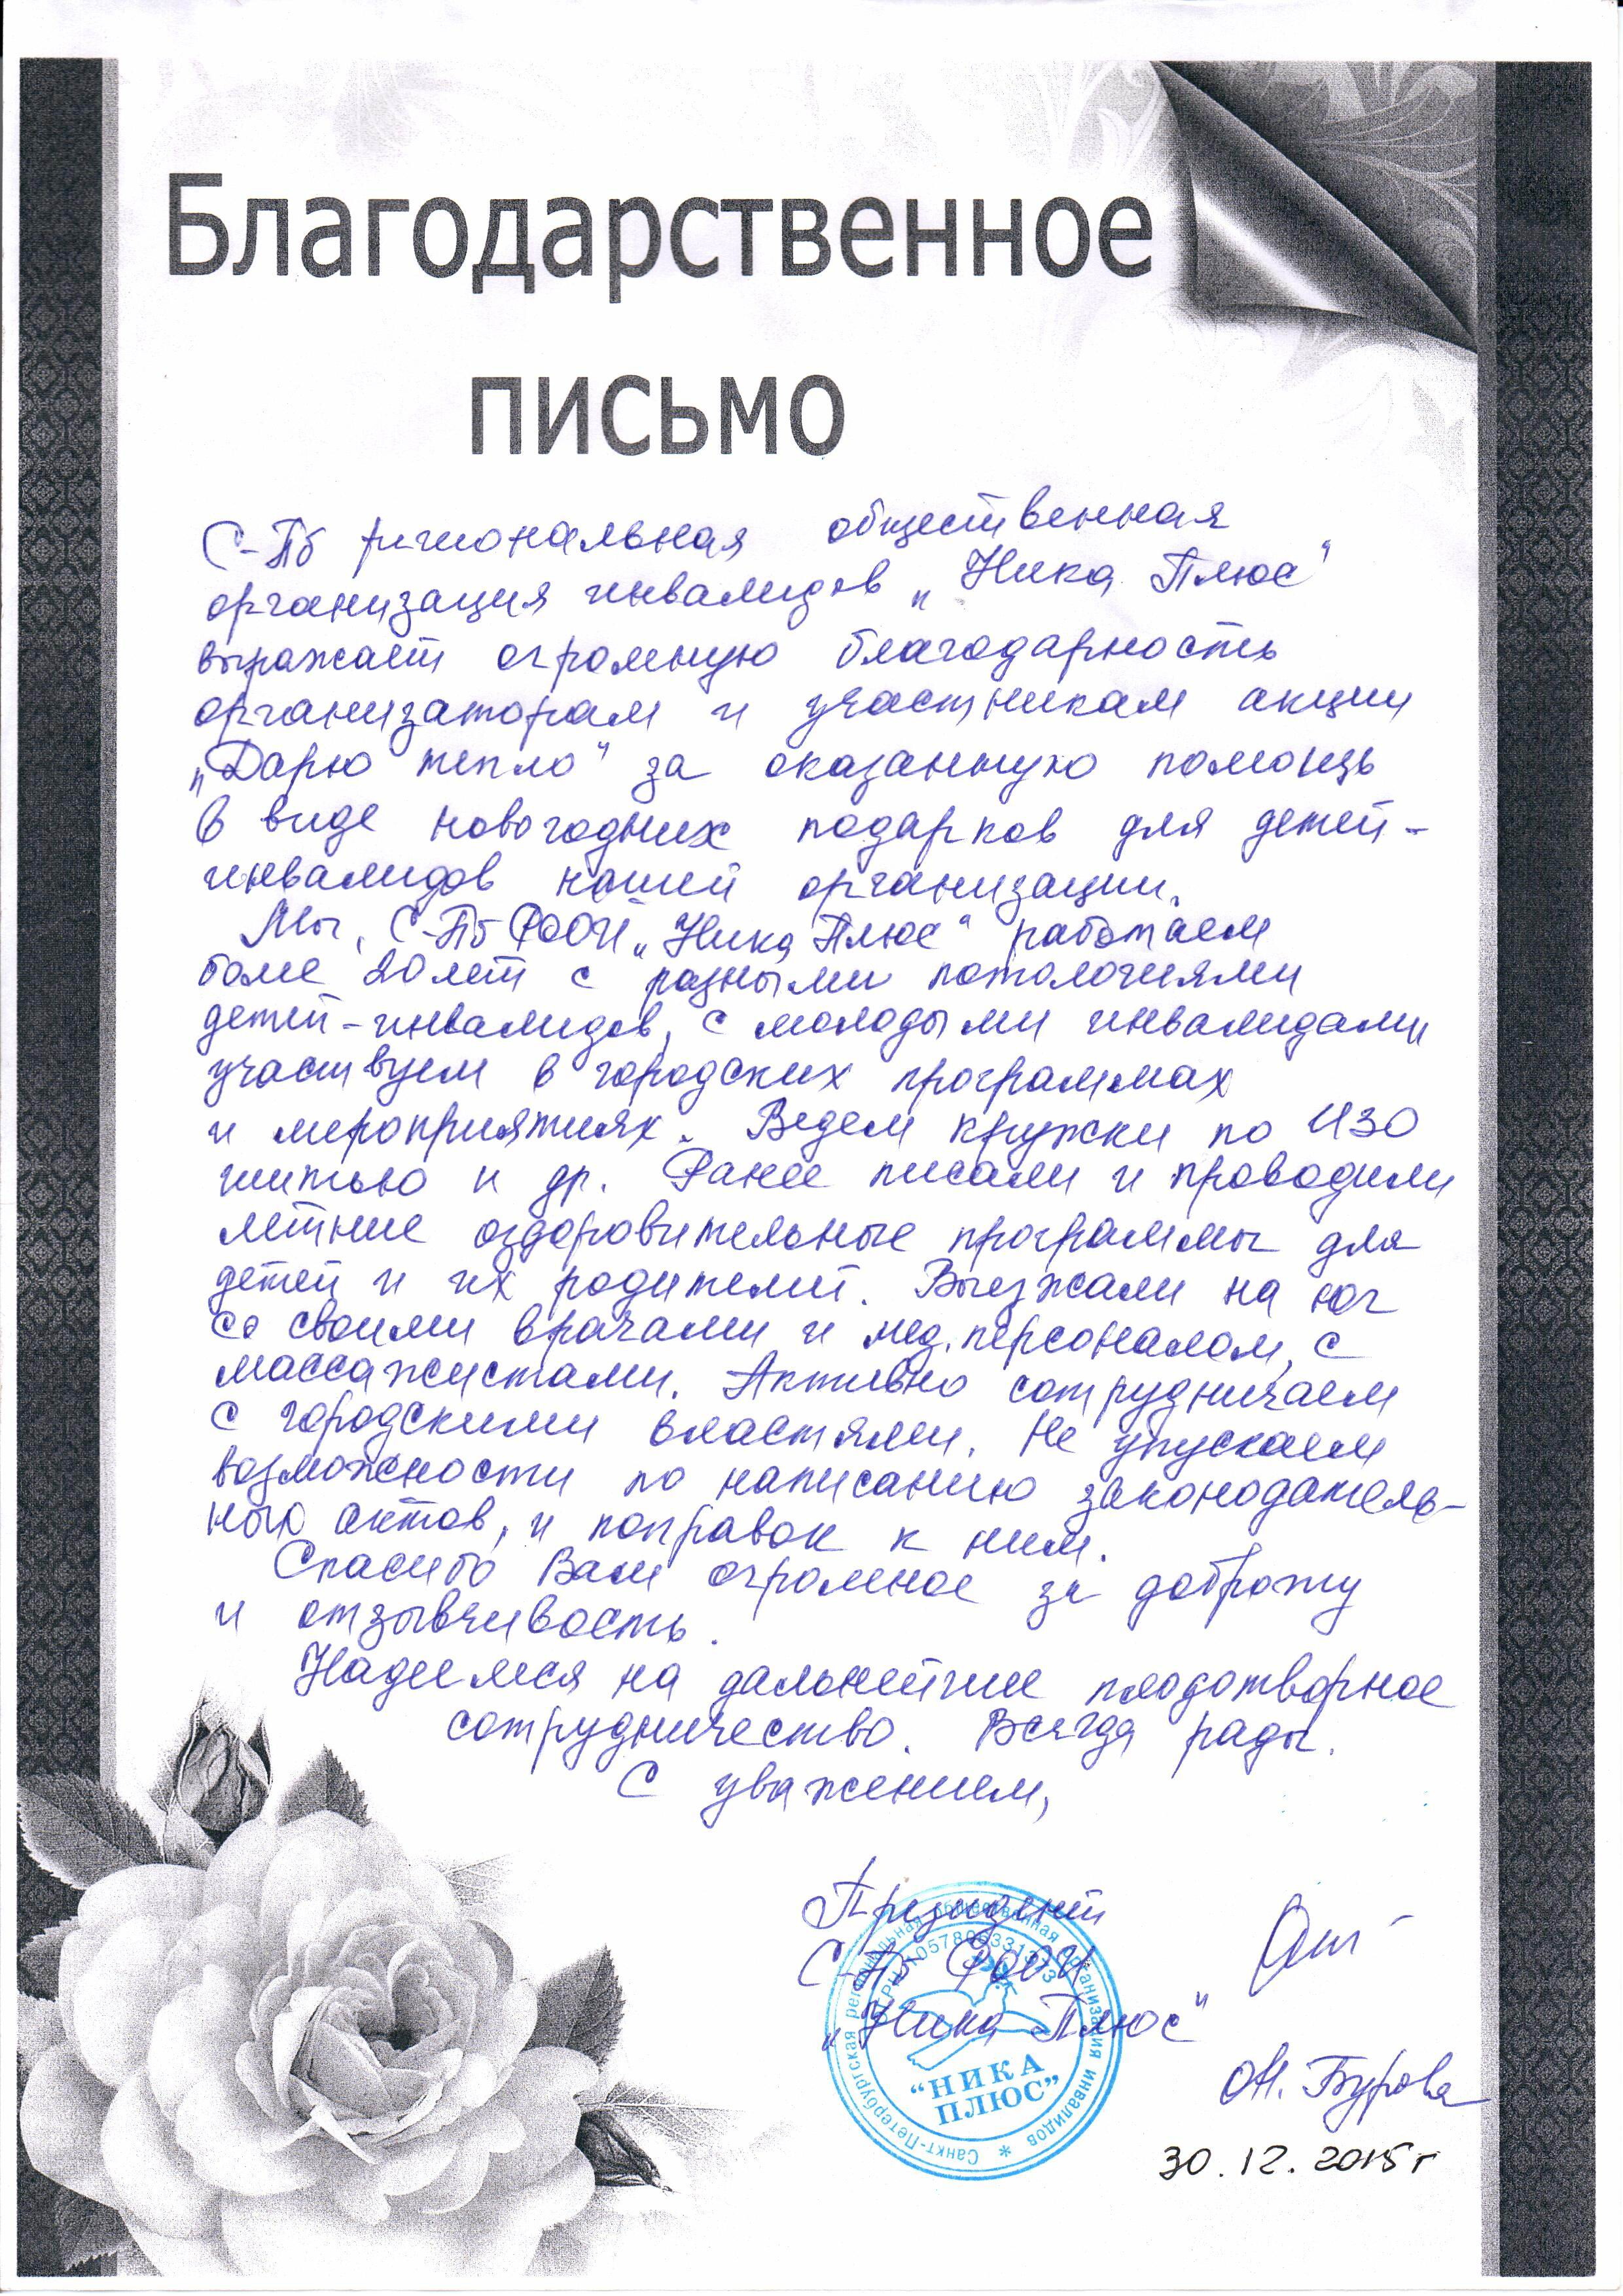 Благодарственное
письмо
С-Пб региональная общественная
организация инвалидов „Ника Плюс“
выражает огромную благодарность
организаторам и участникам акции
„Дарю тепло“ за оказанную помощь
в виде новогодних подарков для детей-
инвалидов нашей организации.
Мы, С-Пб РООИ „Ника Плюс“ работаем
более 20 лет с разными патологиями
детей-инвалидов, с молодыми инвалидами
участвуем в городских программах
и мероприятиях. Ведем кружки по ИЗО
шитью и др. Ранее писали и проводили
летние оздоровительные программы для
детей и их родителей. Выезжали на юг
со своими врачами и мед.персоналом, с
массажистами. Активно сотрудничаем
с городскими властями. Не упускаем
возможности по написанию законодатель-
ных актов, и поправок к ним.
Спасибо Вам огромное за доброту
и отзывчивость.
Надеемся на дальнейшее плодотворное
сотрудничество. Всегда рады.
С уважением,
Президент
С-Пб РООИ
„Ника Плюс“
"НИКА
ПЛЮС"
Санкт-Петербургская региональная общественная организация инвалидов *
М. Бурова
30.12.2015 г